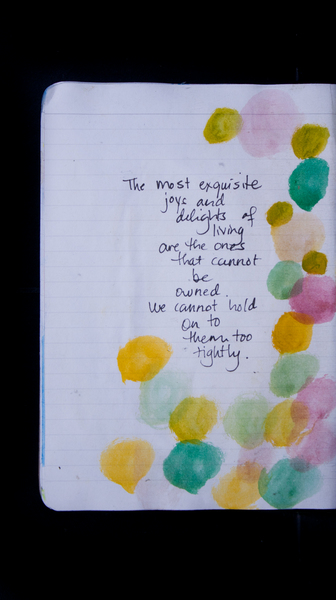 The most exquisite
joys and
delights of
living
are the ones
that cannot
be
owned.
We cannot hold
on to
them too
tightly.